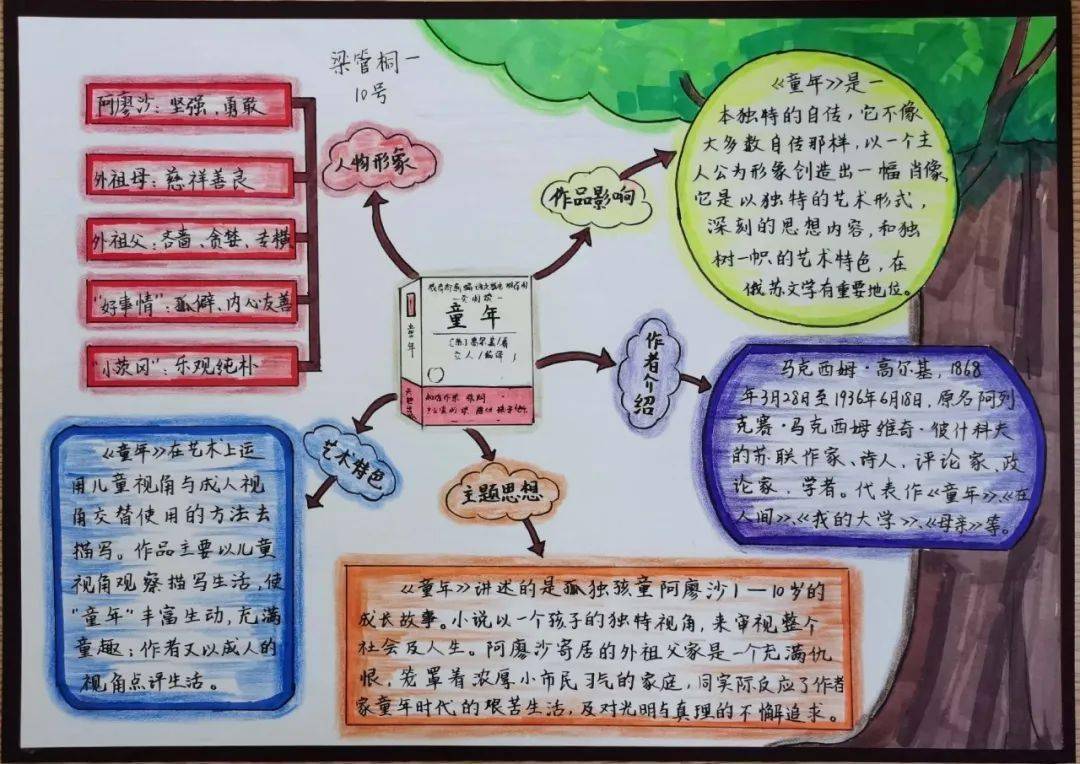 梁管桐一
10号
人物形象
阿廖沙：坚强、勇敢
外祖母：慈祥善良
外祖父：吝啬、贪婪、专横
"好事情"：孤僻、内心友善
"小茨冈"：乐观纯朴
作品影响
《童年》是一
本独特的自传，它不像
大多数自传那样，以一个主
人公为形象创造出一幅肖像，
它是以独特的艺术形式，
深刻的思想内容，和独
树一帜的艺术特色，在
俄苏文学有重要地位。
童年
童年
作者介绍
马克西姆·高尔基，1868
年3月28日至1936年6月18日，原名阿列
克赛·马克西姆维奇·彼什科夫
的苏联作家、诗人，评论家、政
论家，学者。代表作《童年》、《在
人间》、《我的大学》、《母亲》等。
艺术特色
《童年》在艺术上运
用儿童视角与成人视
角交替使用的方法去
描写。作品主要以儿童
视角观察描写生活，使
"童年"丰富生动，充满
童趣；作者又以成人的
视角点评生活。
主题思想
《童年》讲述的是孤独孩童阿廖沙1—10岁的
成长故事。小说以一个孩子的独特视角，来审视整个
社会及人生。阿廖沙寄居的外祖父家是一个充满仇
恨，笼罩着浓厚小市民习气的家庭，同实际反应了作者
家童年时代的艰苦生活，及对光明与真理的不懈追求。